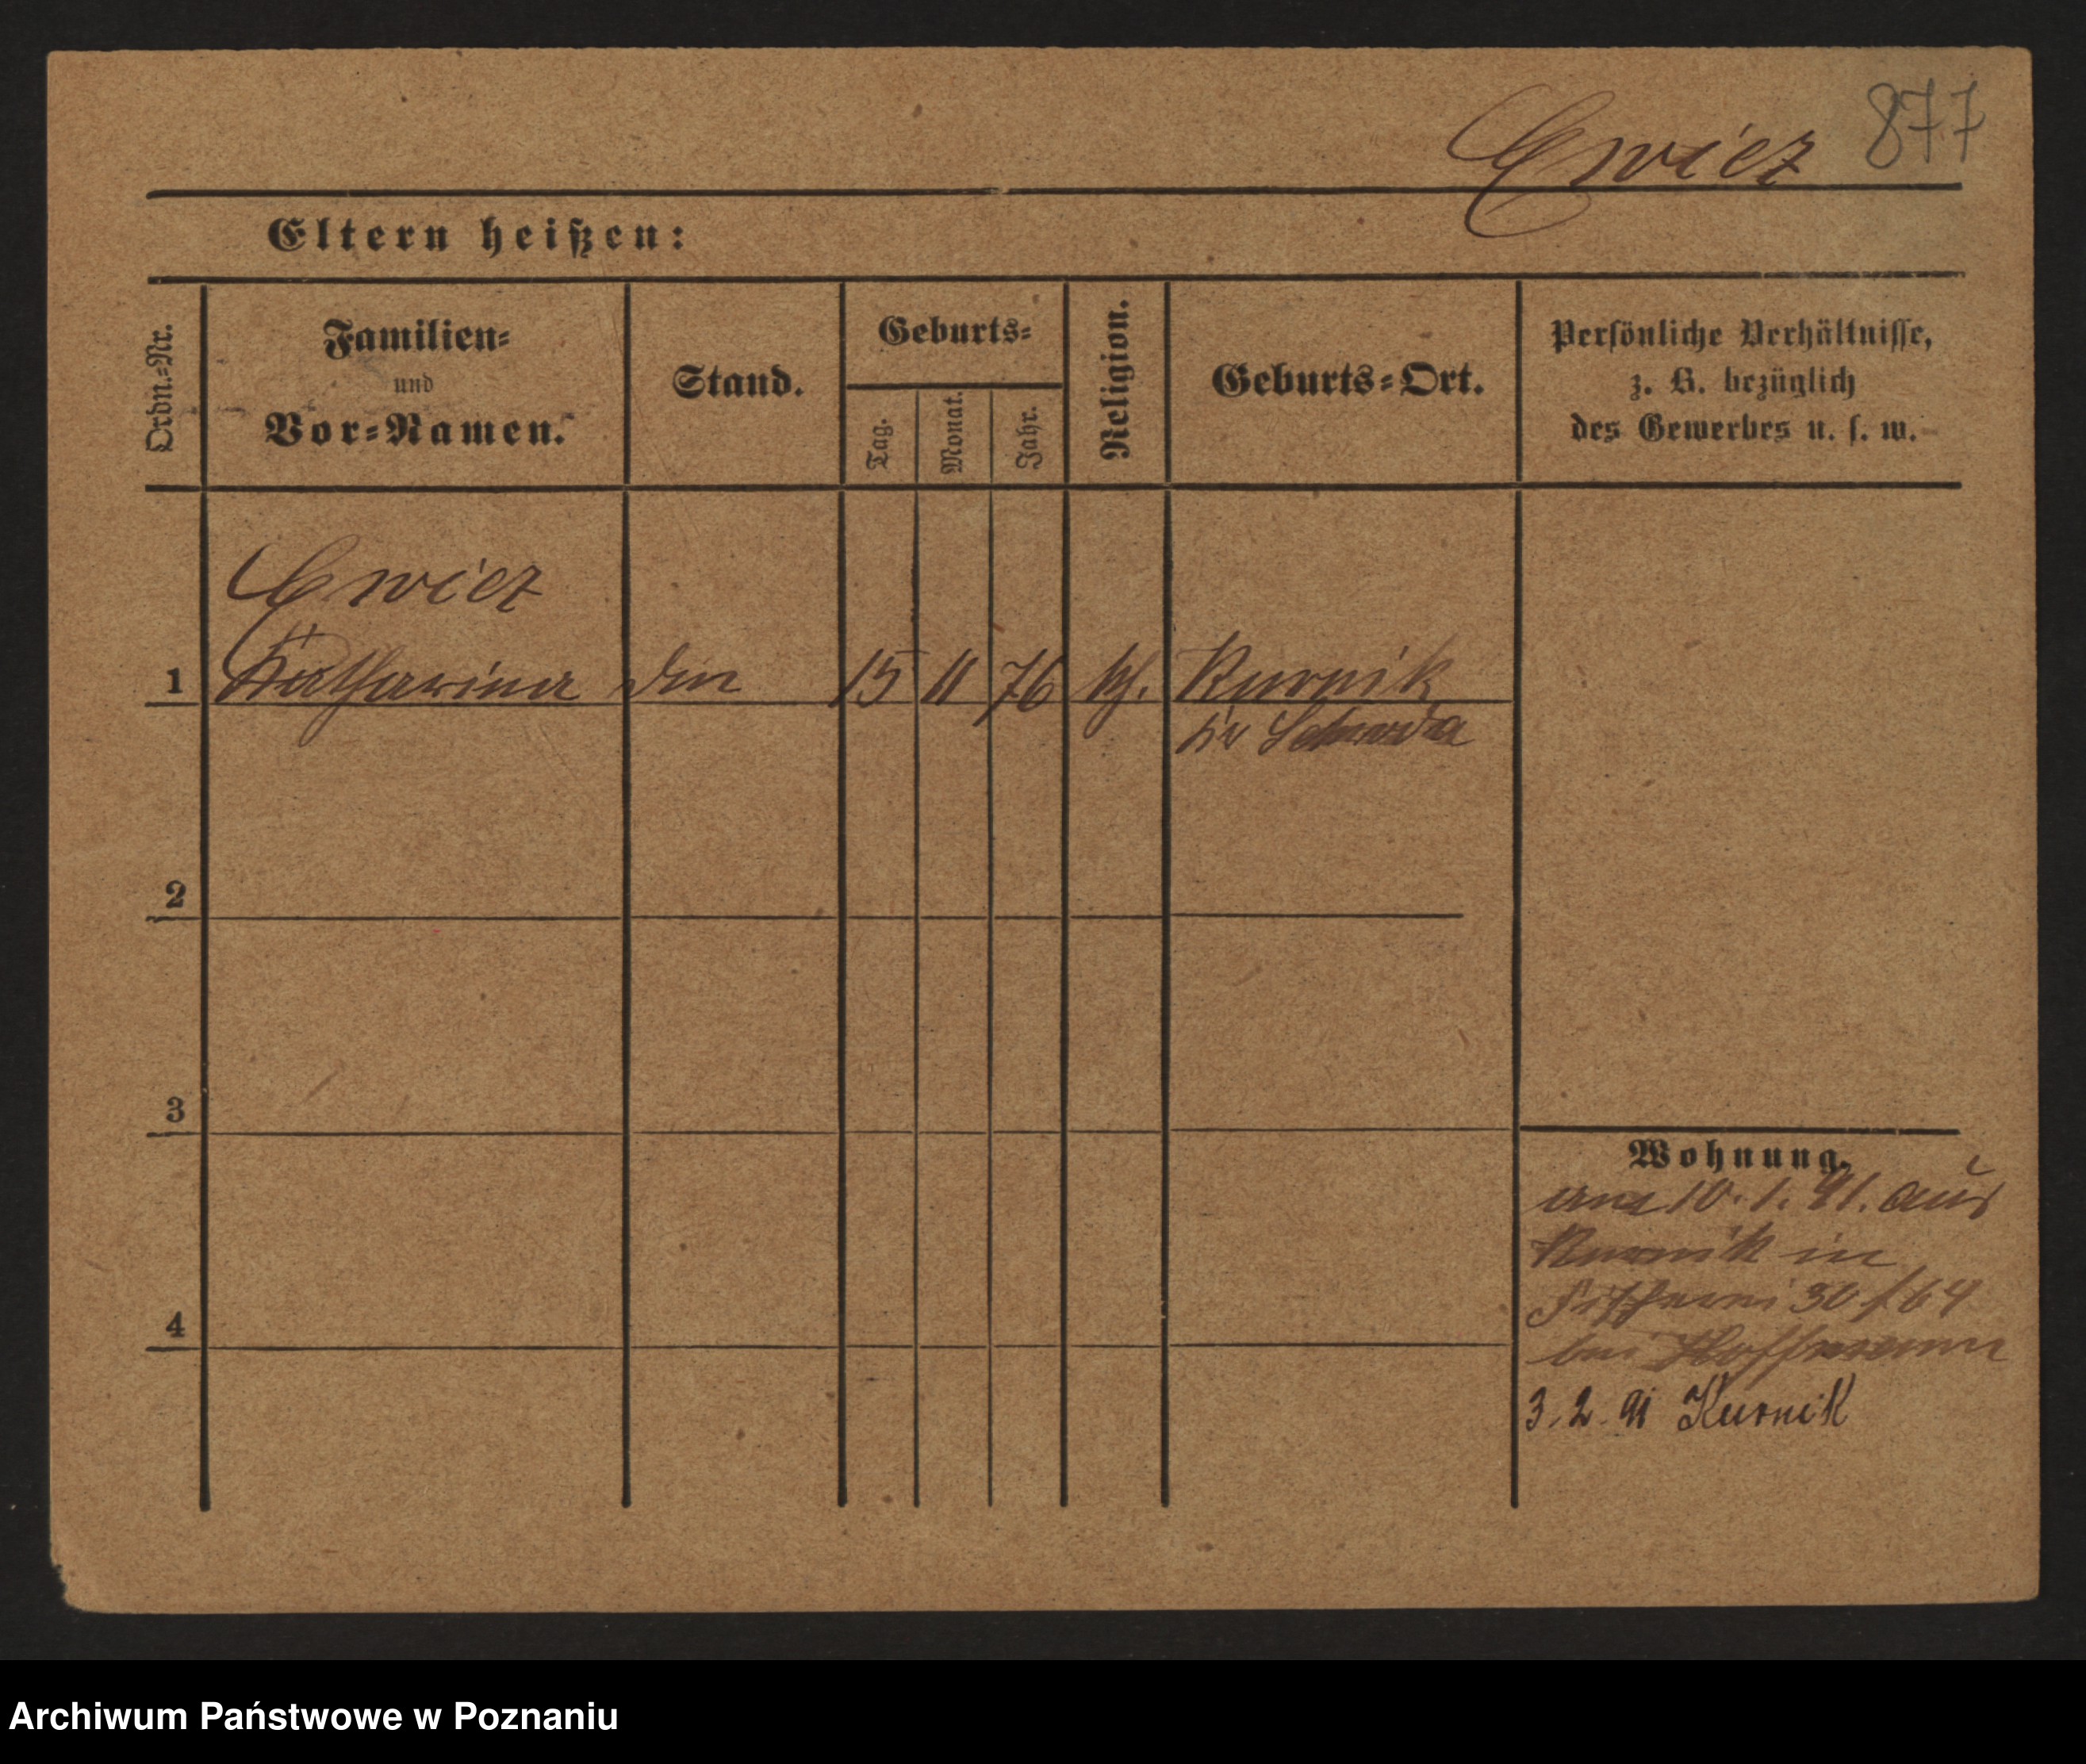 Cwiez 877
Eltern heißen:
Ordn.=Nr.
Familien=
und
Vor=Namen.
Stand.
Geburts=
Tag.
Monat.
Jahr.
Religion.
Geburts=Ort.
Persönliche Verhältnisse,
z. B. bezüglich
des Gewerbes u. s. w.
Cwiez
1 Katharina 15 11 76 kth. Kurnik
Kr Schroda
2
3
4
Wohnung.
am 10. 1. 91. aus
Kurnik in
Fischerei 30 / 64
bei Hoffmann
3. 2. 91 Kurnik
Archiwum Państwowe w Poznaniu